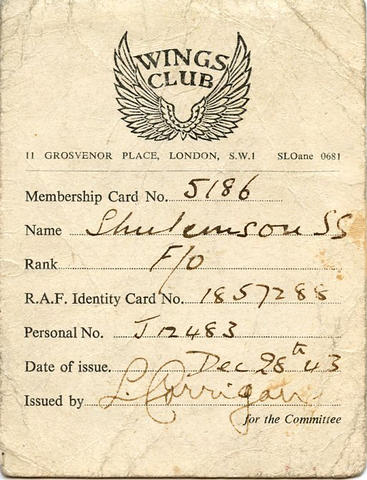 WINGS
CLUB
11 GROSVENOR PLACE, LONDON, S.W.1 SLOane 0681
Membership Card No. 5186
Name Shulemson SS
Rank F/O
R.A.F. Identity Card No. 1857288
Personal No. J12483
Date of issue. Dec 28th 43
Issued by L. Corrigan
for the Committee